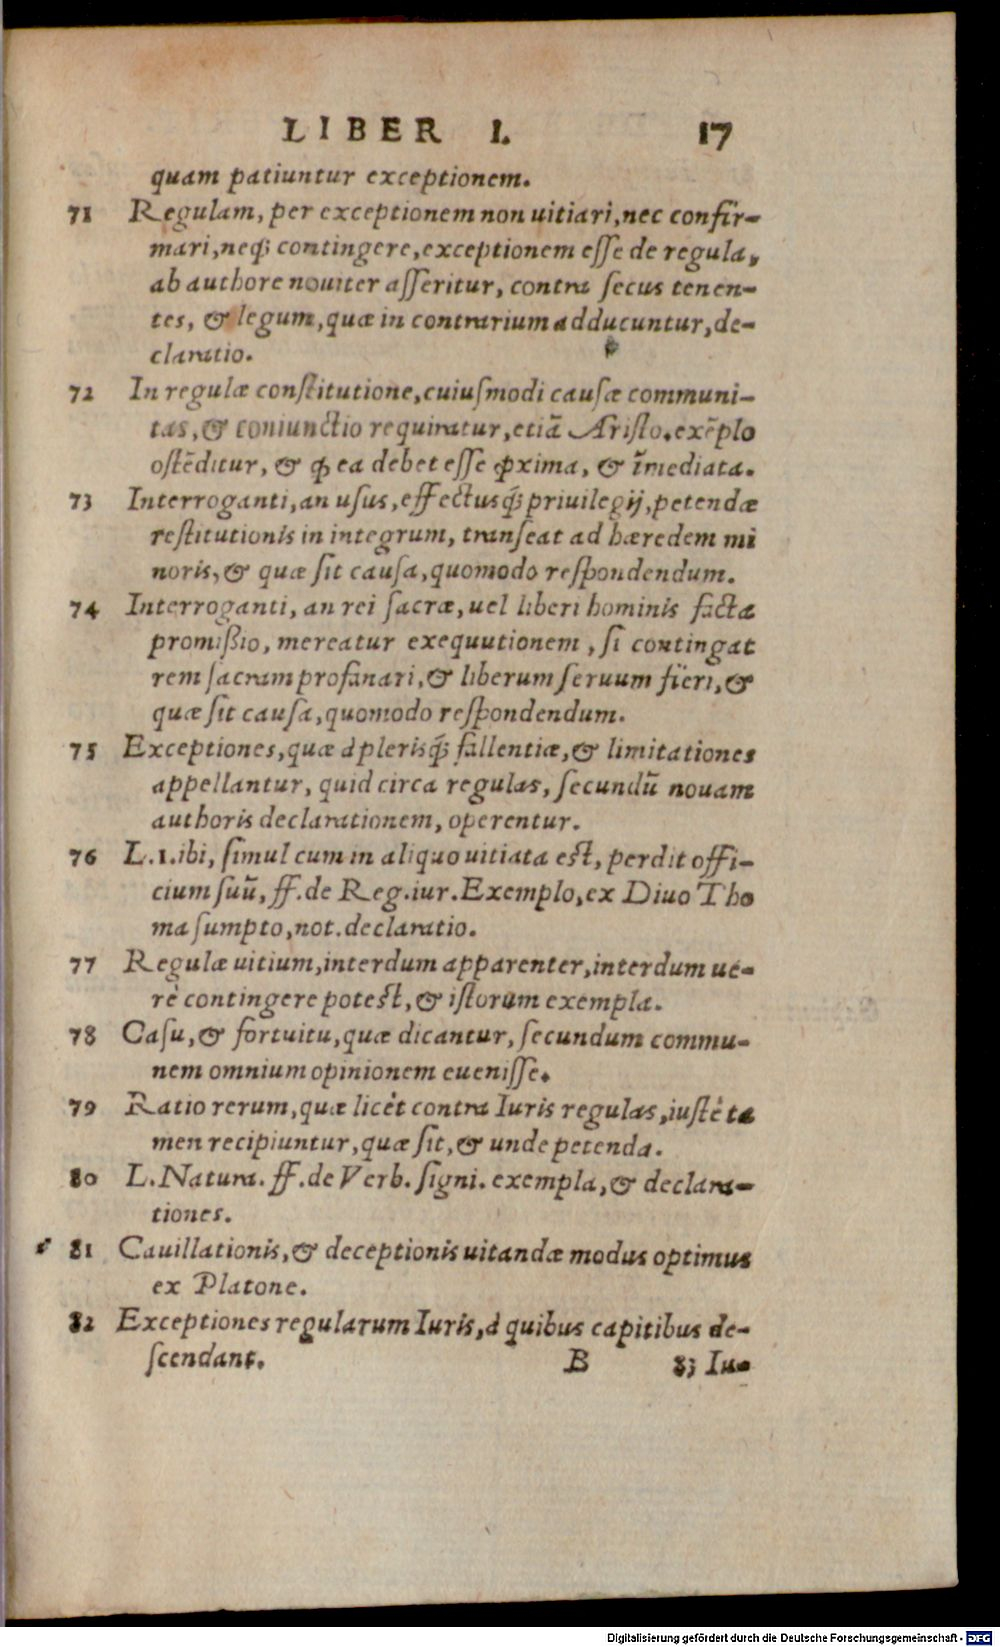 LIBER I. 17
quam patiuntur exceptionem.
71 Regulam, per exceptionem non uitiari, nec confir-
mari, neq́; contingere, exceptionem esse de regula,
ab authore nouiter asseritur, contra secus tenen-
tes, & legum, quæ in contrarium adducuntur, de-
claratio.
72 In regulæ constitutione, cuiusmodi causæ communi-
tas, & coniunctio requiratur, etiã Aristo. exẽplo
ostẽditur, & ꝙ ea debet esse ꝓxima, & ĩmediata.
73 Interroganti, an usus, effectusq́; priuilegij, petendæ
restitutionis in integrum, transeat ad hæredem mi
noris, & quæ sit causa, quomodo respondendum.
74 Interroganti, an rei sacræ, uel liberi hominis facta
promißio, mereatur exequutionem, si contingat
rem sacram profanari, & liberum seruum fieri, &
quæ sit causa, quomodo respondendum.
75 Exceptiones, quæ à plerisq́; fallentiæ, & limitationes
appellantur, quid circa regulas, secundũ nouam
authoris declarationem, operentur.
76 L.1. ibi, simul cum in aliquo uitiata est, perdit offi-
cium suũ, ff. de Reg. iur. Exemplo, ex Diuo Tho
ma sumpto, not. declaratio.
77 Regulæ uitium, interdum apparenter, interdum ue-
rè contingere potest, & istorum exempla.
78 Casu, & fortuitu, quæ dicantur, secundum commu-
nem omnium opinionem euenisse.
79 Ratio rerum, quæ licèt contra Iuris regulas, iustè ta
men recipiuntur, quæ sit, & unde petenda.
80 L. Natura. ff. de Verb. signi. exempla, & declara-
tiones.
81 Cauillationis, & deceptionis uitandæ modus optimus
ex Platone.
82 Exceptiones regularum Iuris, à quibus capitibus de-
scendant. B 83 Iu-
Digitalisierung gefördert durch die Deutsche Forschungsgemeinschaft - DFG